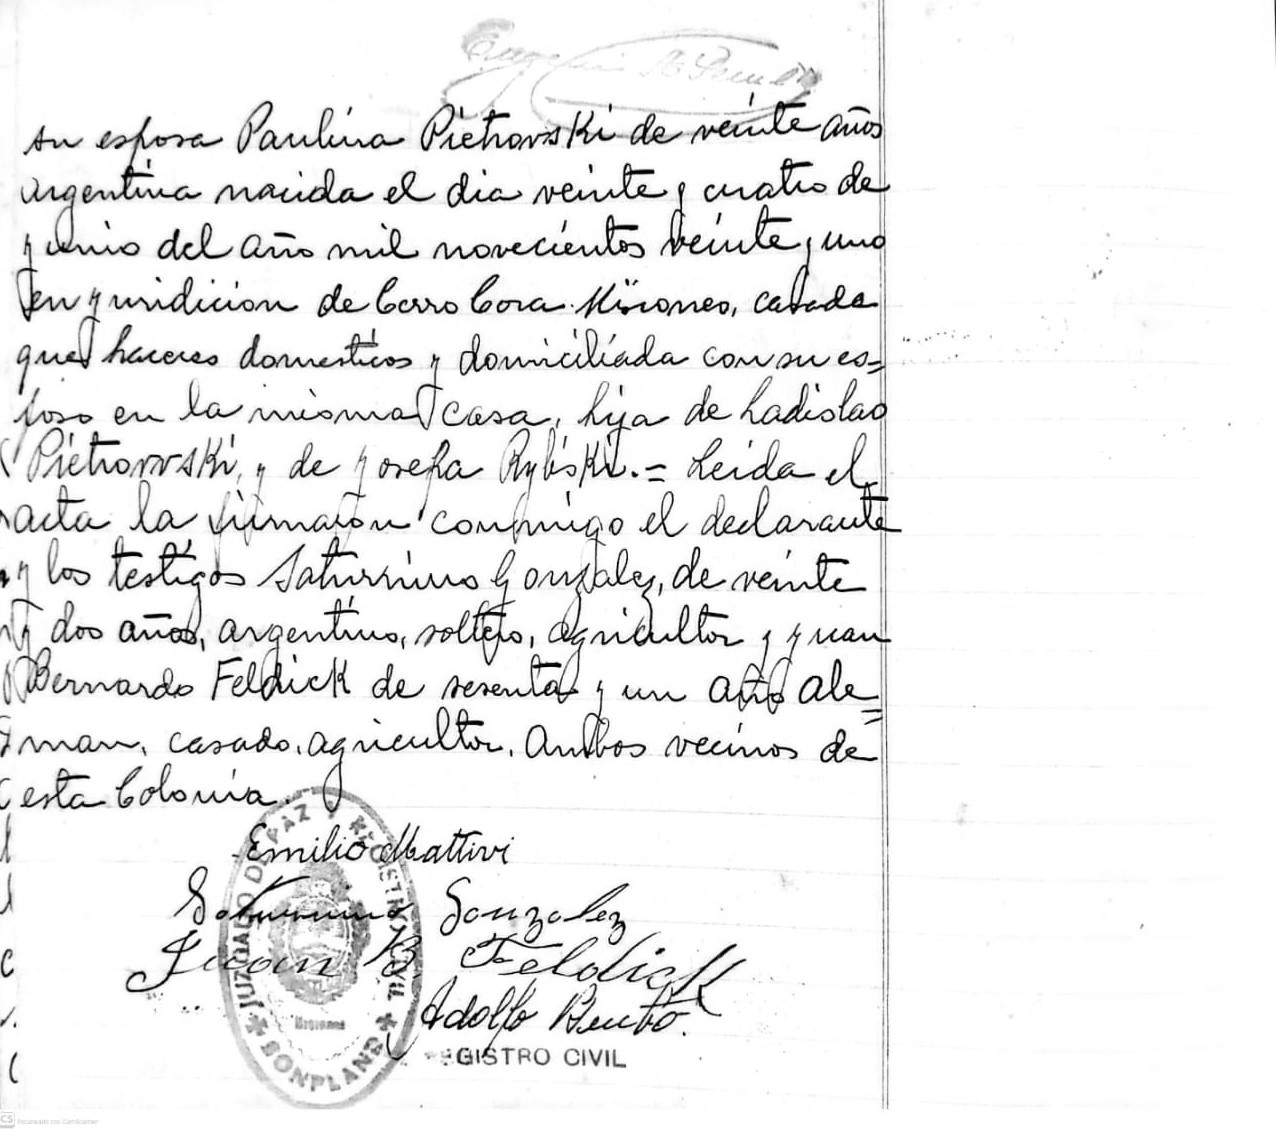 su esposa Paulina Pietrovski de veinte años
argentina nacida el dia veinte y cuatro de
yunio del año mil novecientos veinte y uno
en yuridicion de Cerro Cora. Misiones, casada
que haceres domesticos y domiciliada con su es=
poso en la misma casa, hija de Ladislao
Pietrovski, y de yosefa Rybski.= Leida el
acta la firmaron conmigo el declarante
y los testigos Saturnino Gonzalez, de veinte
y dos años, argentino, soltero, agricultor y yuan
Bernardo Feldick de sesenta y un año ale=
man, casado, agricultor. Ambos vecinos de
esta Colonia.
Emilio Mattivi
Saturnino Gonzalez
Juan B. Feldick
Adolfo
JUZGADO DE PAZ Y REGISTRO CIVIL
Misiones
BONPLAND
REGISTRO CIVIL
CS Escaneado con CamScanner